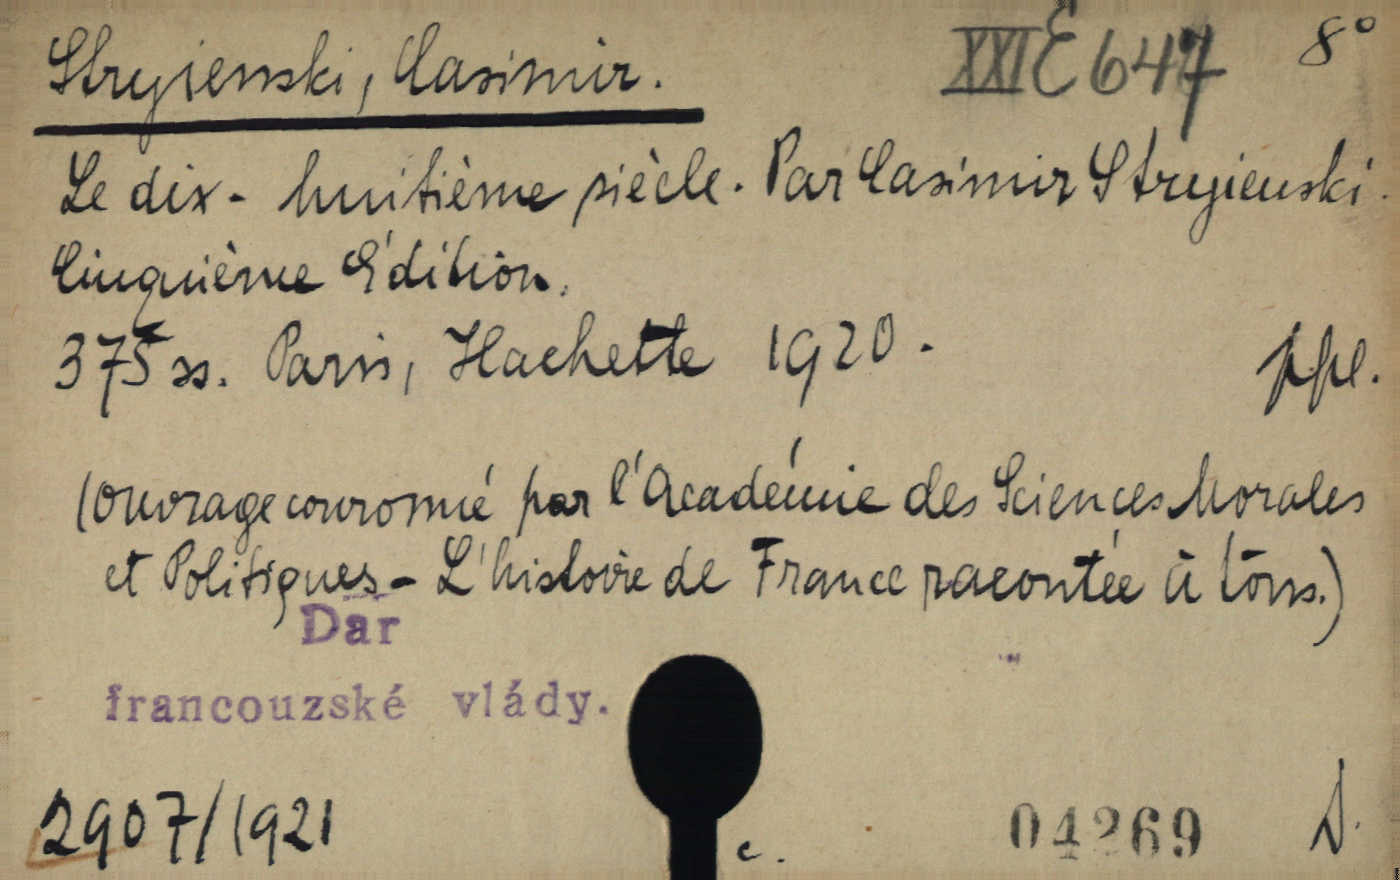 Stryienski, Casimir.
XXI E 647 8°
Le dix-huitième siècle. Par Casimir Stryienski.
Cinquième Édition.
375 ss. Paris, Hachette 1920.
ppl.
(Ouvrage couronné par l'Académie des Sciences Morales
et Politiques - L'histoire de France racontée à tous.)
Dar
francouzské vlády.
2907/1921
c.
04269